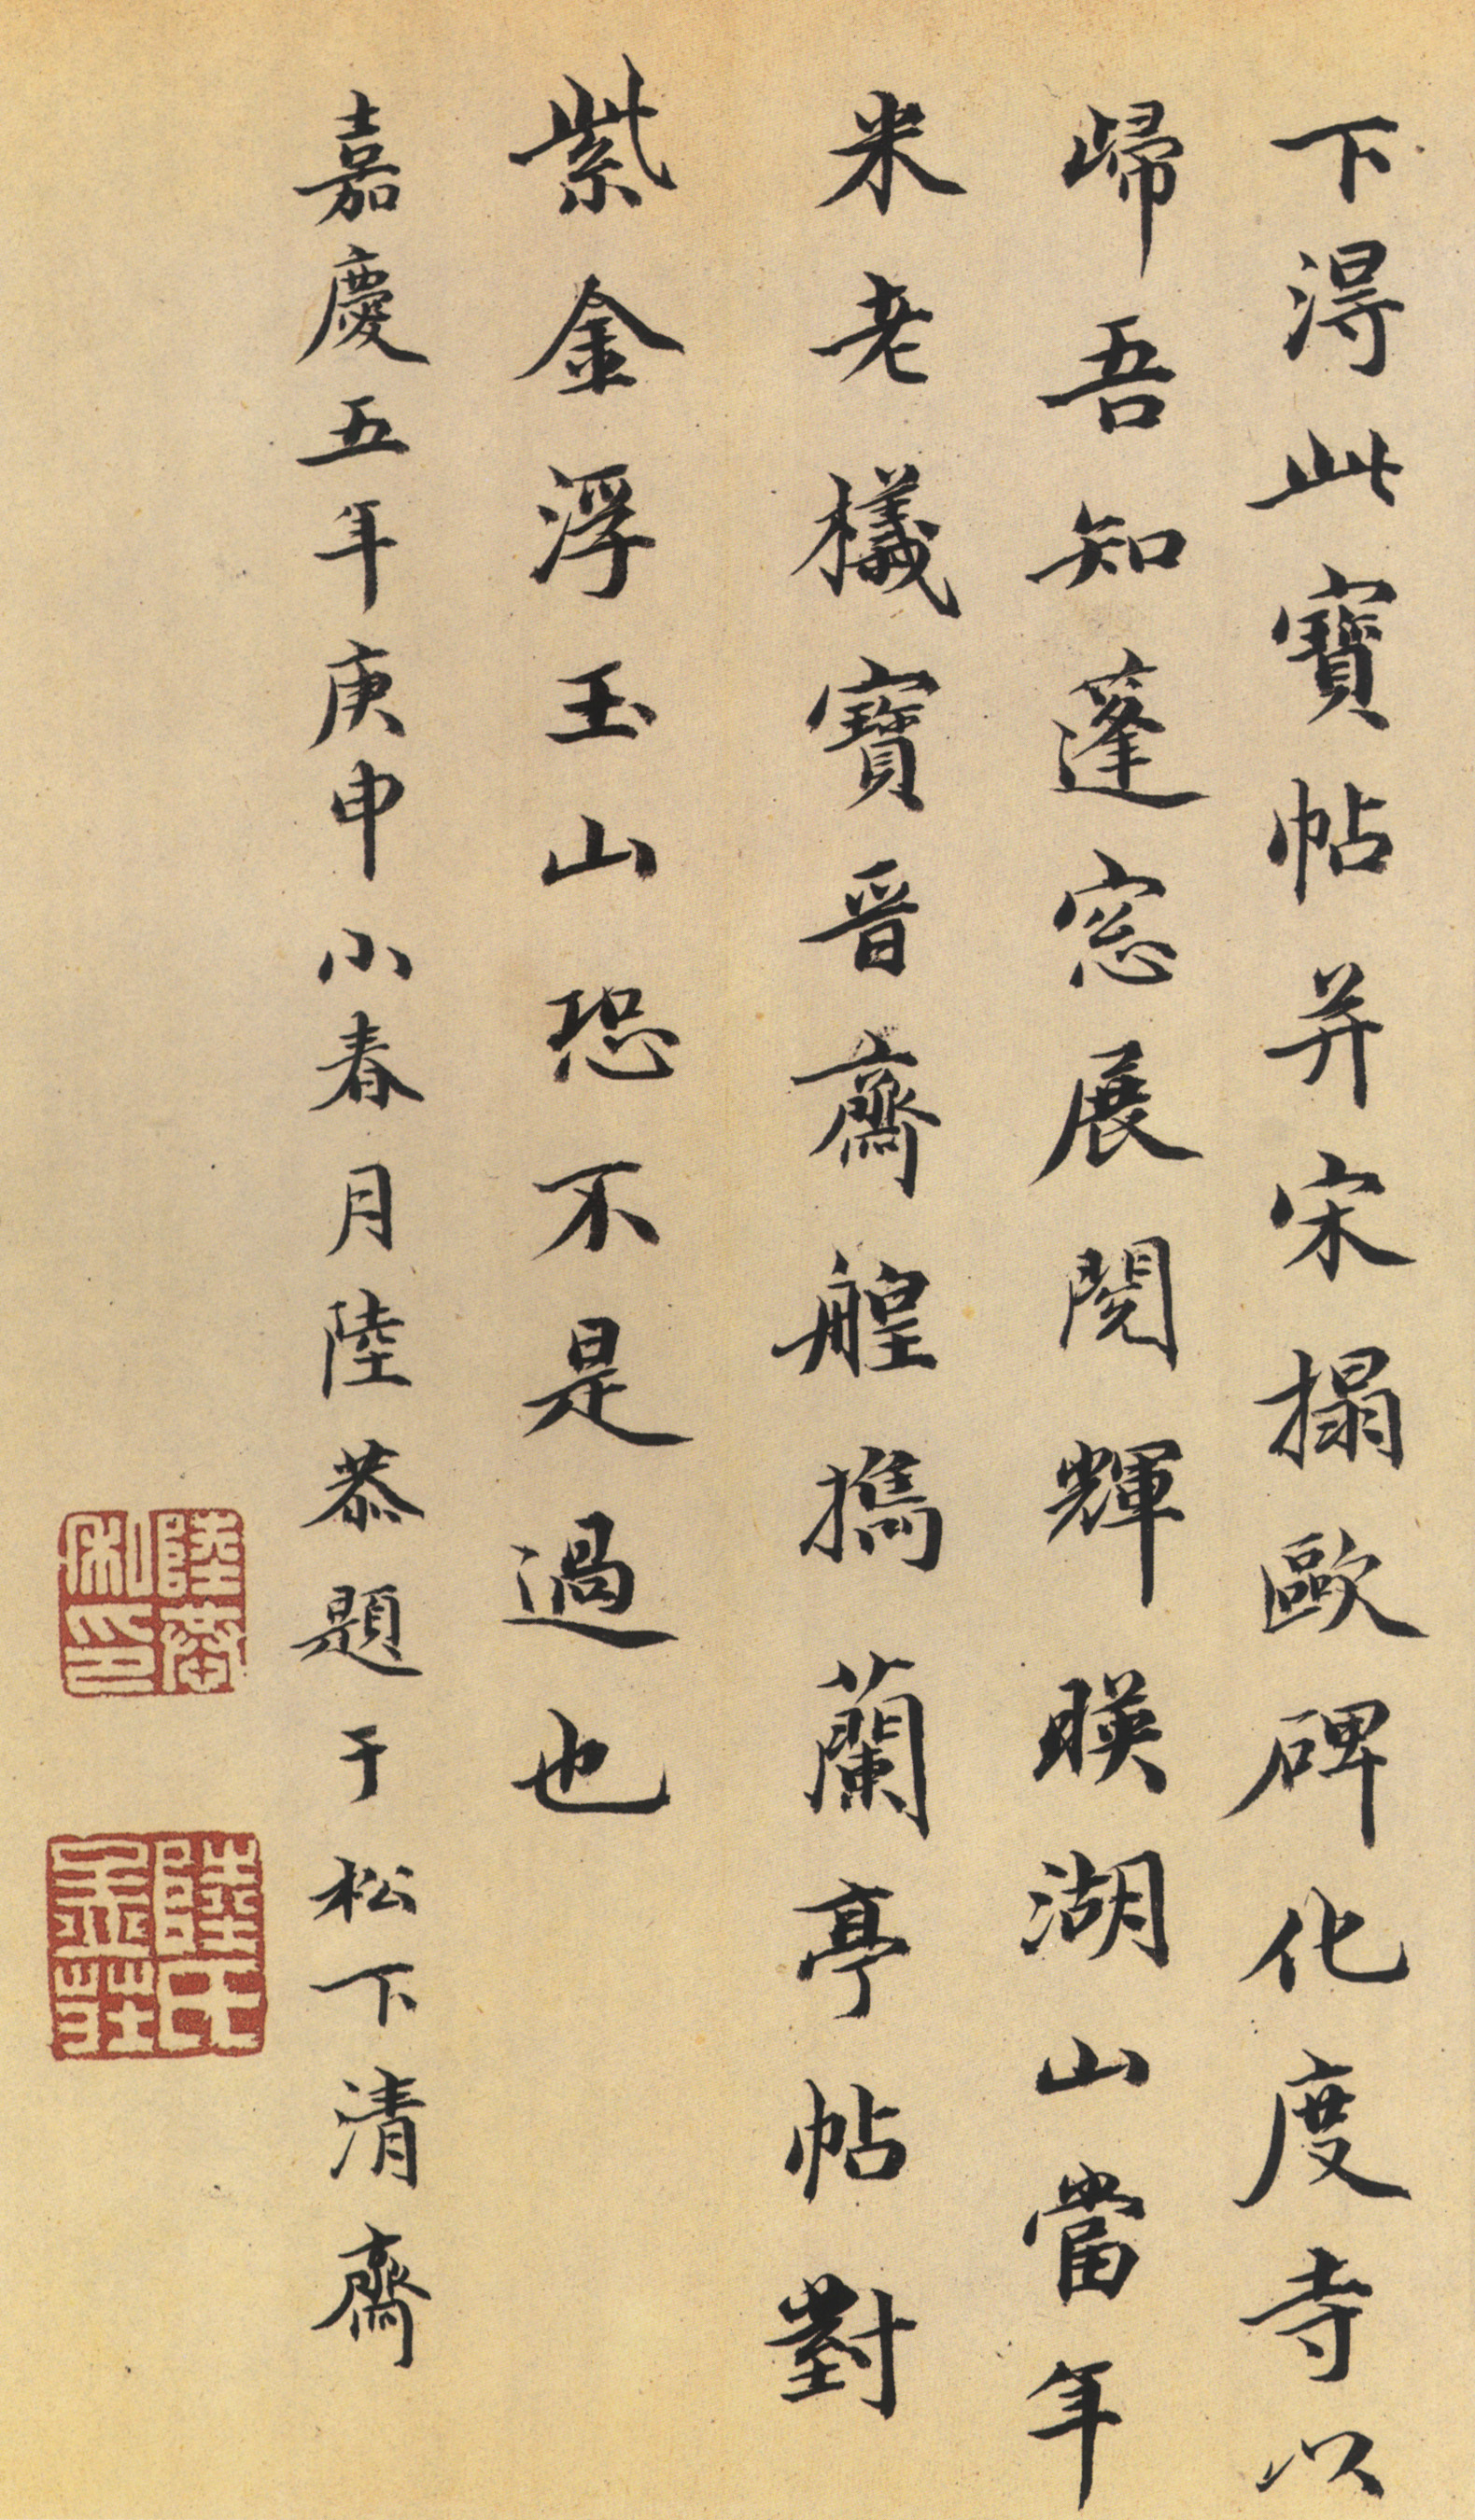 下淂此寶帖并宋搨歐碑化度寺以
歸吾知蓬窓展閱輝暎湖山當年
米老檥寶晋齋艎擕蘭亭帖對
紫金浮玉山恐不是過也
嘉慶五年庚申小春月陸恭題于松下清齋
陸恭私印
陸氏孟莊